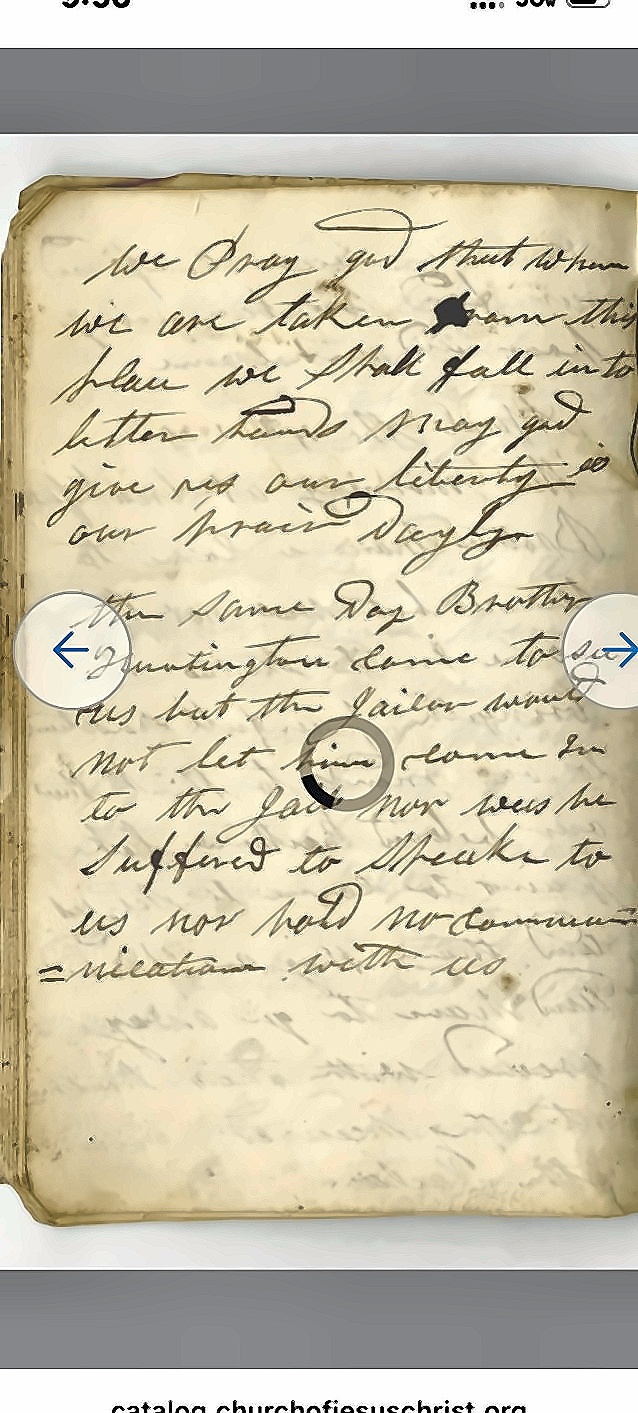 we Pray god that when
we are taken from this
place we Shall fall into
better hands May god
give us our liberty is
our prair Dayly
the same Day Brother
Huntington came to see
us but the Jailor would
not let him come In
to the Jail nor was he
Suffered to Speake to
us nor hold no commun
=nication with us
catalog.churchofjesuschrist.org